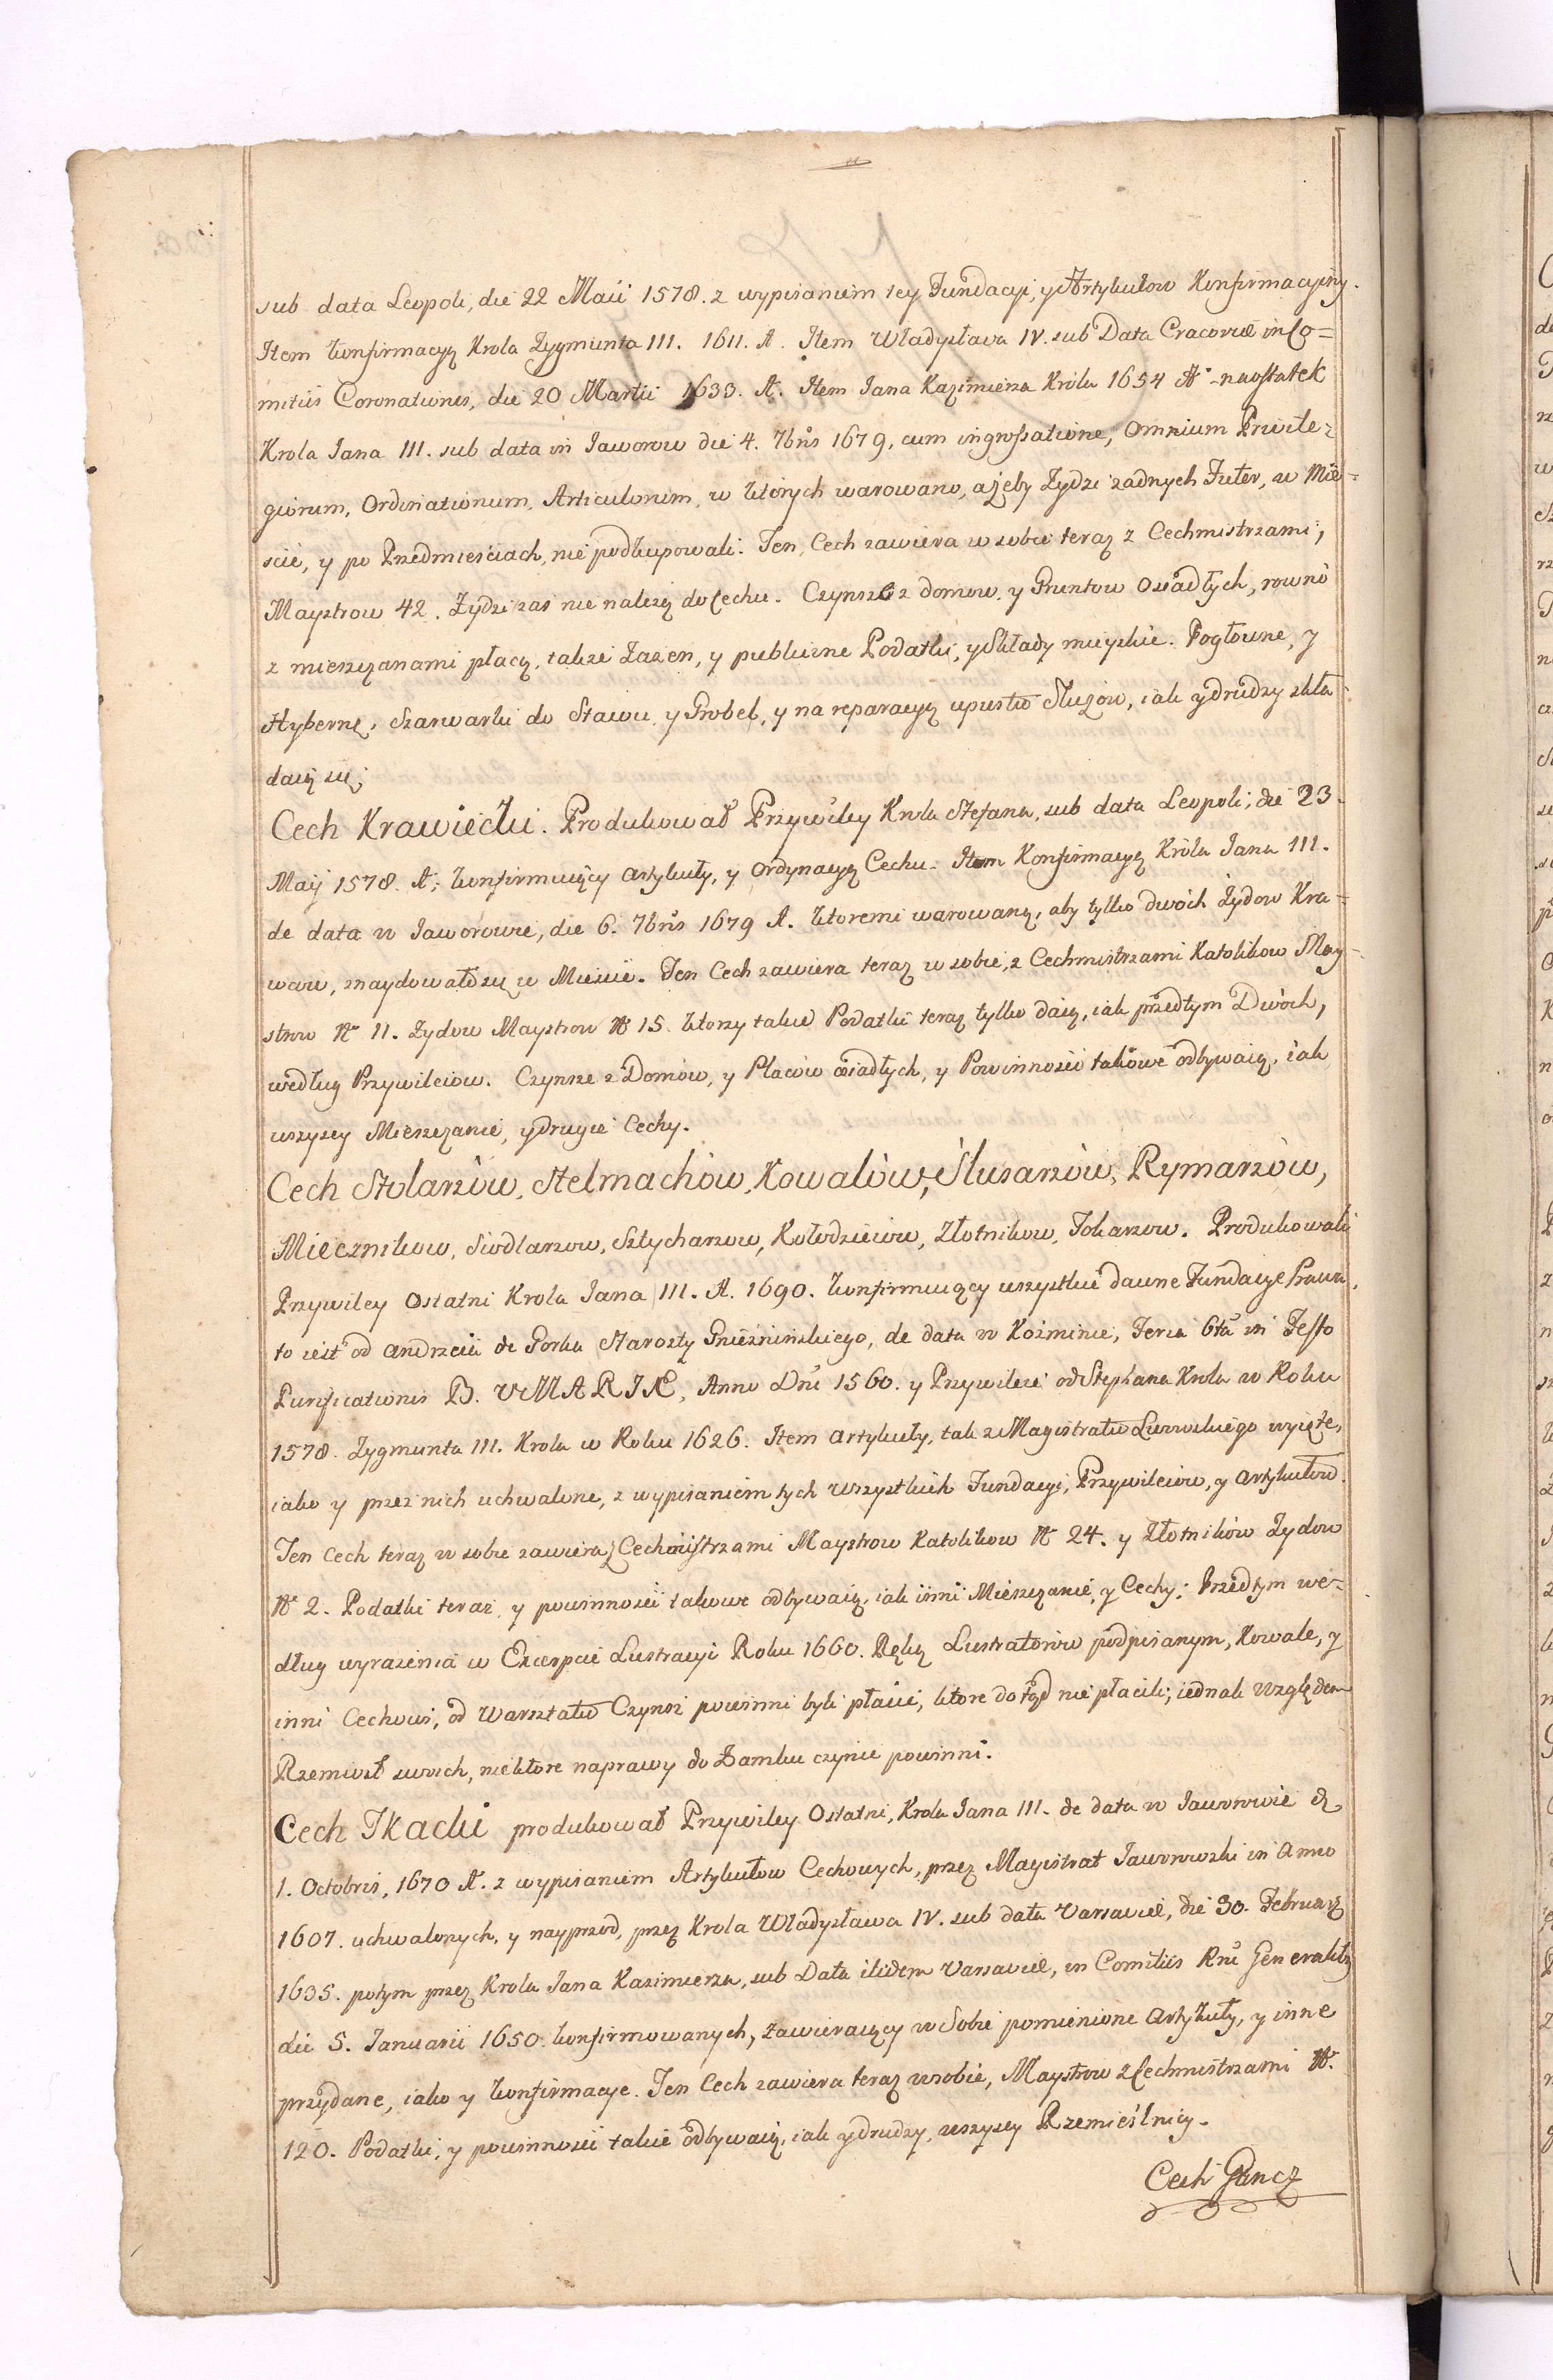 sub data Leopoli, die 22 Maii 1578. z wypisaniem tey Fundacyi, y Artykułow Konfirmacyiny.
Item konfirmacyą Krola Zygmunta III. 1611. A. Item Władysława IV. sub Data Cracoviæ in Co=
mitiis Coronationis, die 20 Martii 1633. A. Item Jana Kazimierza Króla 1654 A° naostatek
Krola Jana III. sub data in Jaworow die 4. 7bris 1679, cum ingrossatione, Omnium Privile=
giorum, Ordinationum, Articulorum, w ktorych warowano, ażeby Zydzi zadnych Futer, w Mie=
scie, y po Przedmiesciach, nie podkupowali. Ten Cech zawiera w sobie teraz z Cechmistrzami,
Maystrow 42. Zydzi zas nie nalezą do Cechu. Czynsze z domow, y Gruntow Osiadłych, rowno
z mieszczanami płacą, takze Zazen, y publiczne Podatki, y Składy mieyskie. Pogłowne, y
Hybernę, Szarwarki do Stawu, y Grobel, y na reparacyą upustow Sluzow, iak y drudzy skła=
daią się,
Cech Krawiecki. Produkował Przywiley Krola Stefana, sub data Leopoli, die 23.
Maij 1578. A; konfirmuiący artykuły, y Ordynacyą Cechu. Item Konfirmacyą Króla Jana III.
de data w Jaworowie, die 6. 7bris 1679 A. ktoremi warowano, aby tylko dwóch Żydow Kra=
wcow, znaydowało się w Miescie. Ten Cech zawiera teraz w sobie, z Cechmistrzami Katolikow May=
strow N° 11. Zydow Maystrow N° 15. ktorzy takie Podatki teraz tylko daią, iak przedtym Dwóch,
według Przywileiow. Czynsze z Domów, y Placów osiadłych, y Powinnosci takowe odbywaią, iak
wszyscy Mieszczanie, y drugie Cechy.
Cech Stolarzów, Stelmachów, Kowalów, Slusarzów, Rymarzów,
Miecznikow, Siodlarzow, Szlycharzow, Kołodzieiow, Złotnikow, Tokarzow. Produkowali
Przywiley Ostatni Krola Jana III. A. 1690. konfirmuiący wszystkie dawne Fundacye Prawa,
to iest od Andrzeia de Gorka Starosty Gnieźninskiego, de data w Koźminie, Feria 6ta in Festo
Purificationis B. V. MARIÆ, Anno Dni 1560. y Przywileie od Stephana Krola w Roku
1578. Zygmunta III. Krola w Roku 1626. Item artykuły, tak z Magistratu Lwowskiego wyięte,
iako y przez nich uchwalone, z wypisaniem tych wszystkich Fundacyi, Przywileiow, y Artykułow.
Ten Cech teraz w sobie zawiera z Cechmistrzami Maystrow Katolikow N° 24. y Złotników Zydow
N° 2. Podatki teraz, y powinnosci takowe odbywaią, iak inni Mieszczanie, y Cechy; Przedtym we=
dług wyrazenia w Excerpcie Lustracyi Roku 1660. Ręką Lustratorów podpisanym, Kowale, y
inni Cechowi, od Warsztatow Czynsz powinni byli płacić, ktore dotąd nie płacili; iednak względem
Rzemiosł swoich, niektore naprawy do Zamku czynić powinni.
Cech Tkacki produkował Przywiley Ostatni, Krola Jana III. de data w Jaworowie d.
1. Octobris, 1670 A. z wypisaniem Artykułow Cechowych, przez Magistrat Jaworowski in Anno
1607. uchwalonych, y nayprzod, przez Krola Władysława IV. sub data Varsaviæ, die 30. Februarij
1635. potym przez Krola Jana Kazimierza, sub Data itidem Varsaviæ, in Comitiis Rni Generalib9
die 5. Januarii 1650. konfirmowanych, zawieraiący w Sobie pomienione artykuły, y inne
przydane, iako y konfirmacye. Ten Cech zawiera teraz w sobie, Maystrow z Cechmistrzami N°
120. Podatki, y powinnosci takie odbywaią, iak y drudzy, wszyscy Rzemieślnicy.
Cech Ganca